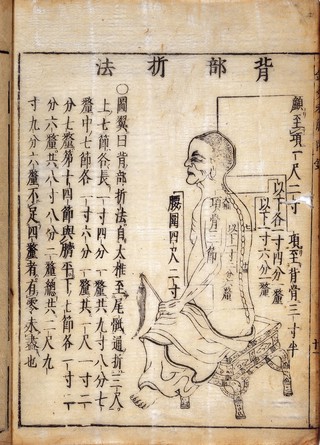 背部折法
顱至項一尺二寸
項至背骨三寸半
以下各一寸四分一釐
以下一寸六分一釐
項骨三節
腰圍四尺二寸
〇圖翼曰背部折法自大椎至尾骶通折三尺
上七節各長一寸四分一釐共九寸八分七
釐中七節各一寸六分一釐共一尺一寸二
分七釐第十四節與臍平下七節各一寸二
分六釐共八寸八分二釐總共二尺九
寸九分六釐不足四釐者有零未盡也